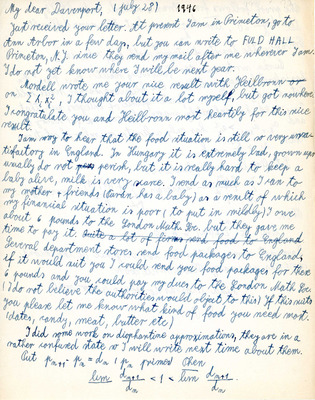 My dear Davenport, (July 28) 1946
Just received your letter. At present I am in Princeton, go to
Ann Arbor in a few days, but you can write to FULD HALL
Princeton, N.J. since they send my mail after me wherever I am.
I do not yet know where I will be next year.
Mordell wrote me your nice result with Heilbronn
on Σ λi xi², I thought about it a lot myself, but got nowhere.
I congratulate you and Heilbronn most heartily for this nice
result.
I am sorry to hear that the food situation is still so very unsa-
tisfactory in England. In Hungary it is extremely bad, grown ups
usually do not perish, but it is really hard to keep a
baby alive, milk is very scarce. I send as much as I can to
my mother + friends (Turán has a baby) as a result of which
my financial situation is poor (to put it mildly) I owe
about 6 pounds to the London Math Soc. but they gave me
time to pay it. Quite a lot of firms send food to England
Several department stores send food packages to England,
if it would suit you I could send you food packages for these
6 pounds and you could pay my dues to the London Math Soc.
(I do not believe the authorities would object to this) If this suits
you please let me know what kind of food you need most.
(dates, candy, meat, butter etc)
I did some work on diophantine approximations, they are in a
rather confused state so I will write next time about them.
Put pn+1 - pn = dn, pn primes Then
lim dn+1/dn < 1 < lim dn+1/dn.